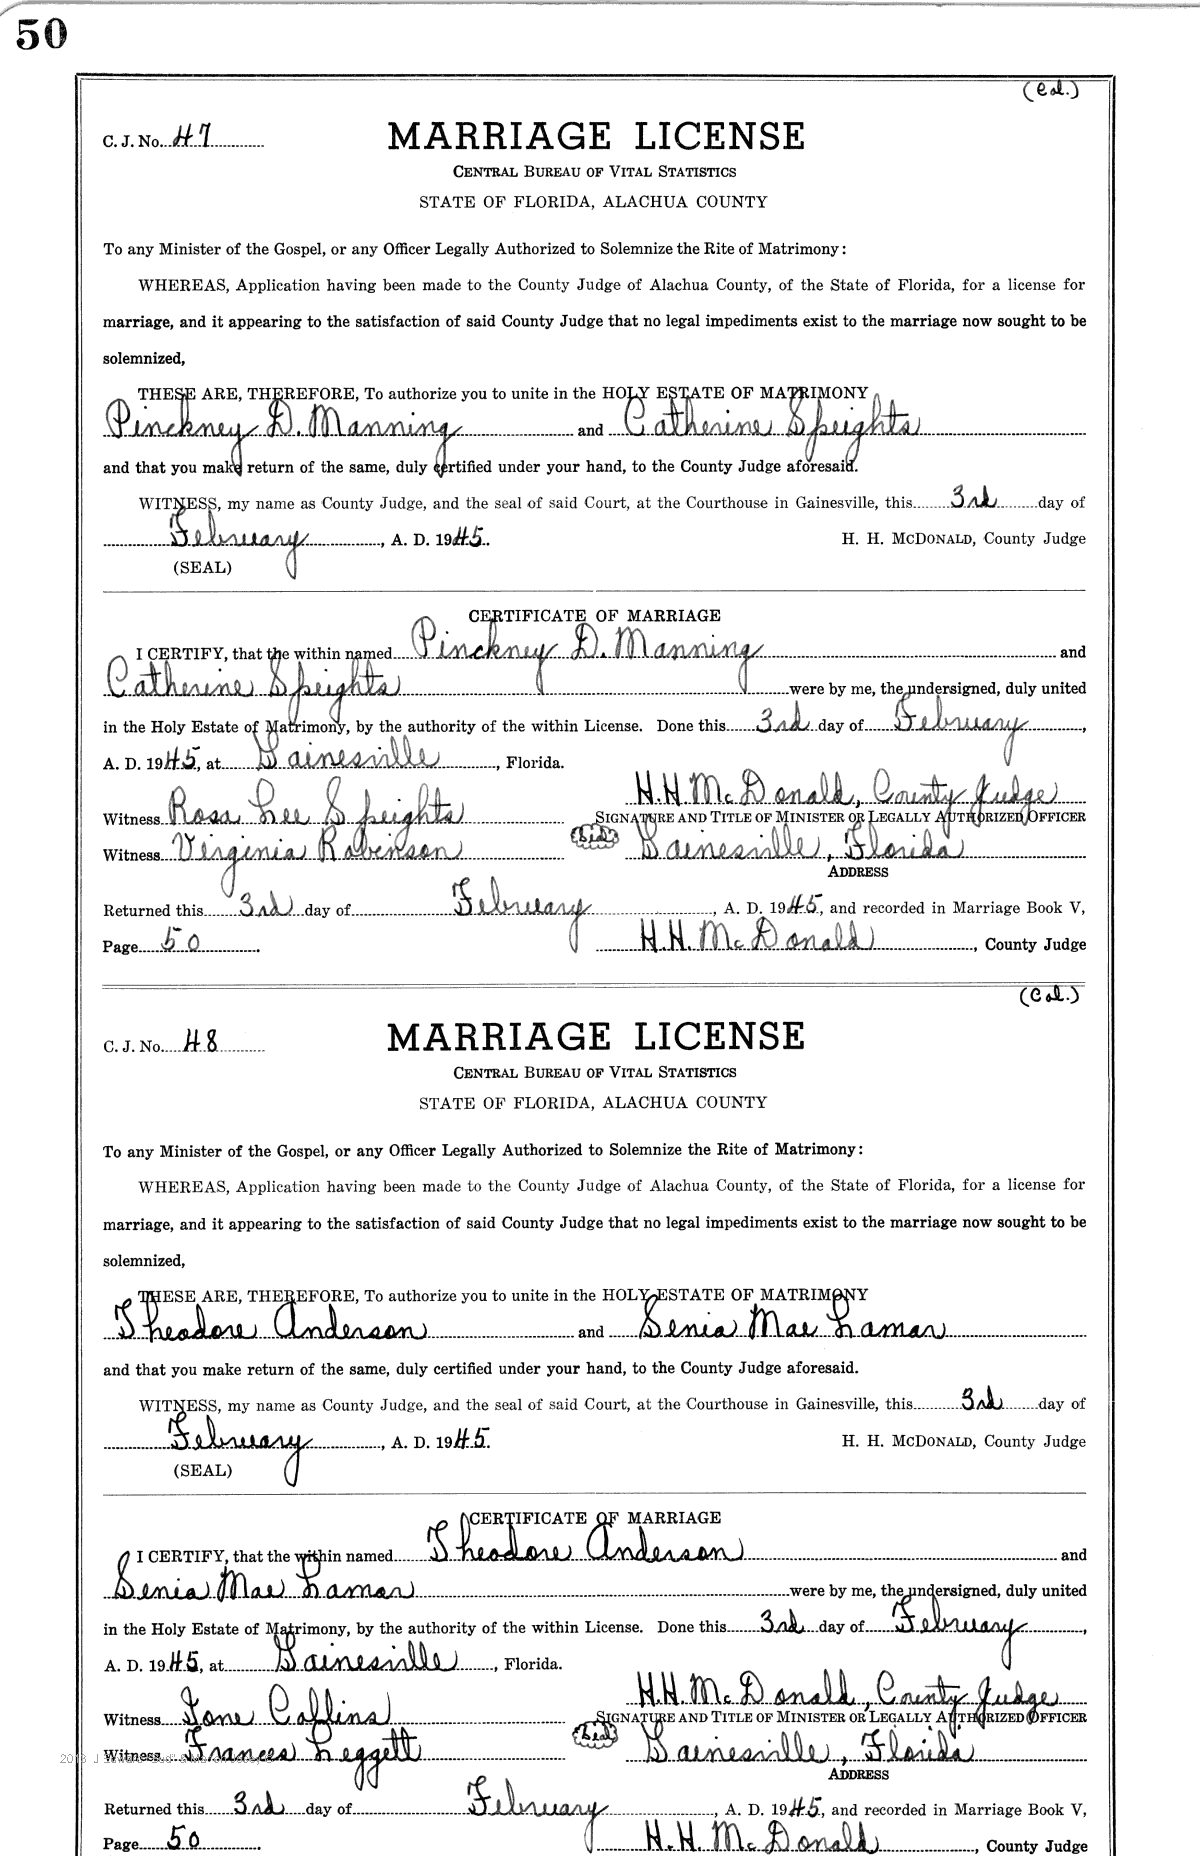 50
(Col.)
C. J. No. 47
MARRIAGE LICENSE
CENTRAL BUREAU OF VITAL STATISTICS
STATE OF FLORIDA, ALACHUA COUNTY
To any Minister of the Gospel, or any Officer Legally Authorized to Solemnize the Rite of Matrimony:
WHEREAS, Application having been made to the County Judge of Alachua County, of the State of Florida, for a license for
marriage, and it appearing to the satisfaction of said County Judge that no legal impediments exist to the marriage now sought to be
solemnized,
THESE ARE, THEREFORE, To authorize you to unite in the HOLY ESTATE OF MATRIMONY
Pinckney D. Manning and Catherine Speights
and that you make return of the same, duly certified under your hand, to the County Judge aforesaid.
WITNESS, my name as County Judge, and the seal of said Court, at the Courthouse in Gainesville, this 3rd day of
February, A. D. 1945. H. H. MCDONALD, County Judge
(SEAL)
CERTIFICATE OF MARRIAGE
I CERTIFY, that the within named Pinckney D. Manning and
Catherine Speights were by me, the undersigned, duly united
in the Holy Estate of Matrimony, by the authority of the within License. Done this 3rd day of February,
A. D. 1945, at Gainesville, Florida.
H.H. McDonald, County Judge
Witness Rosa Lee Speights SIGNATURE AND TITLE OF MINISTER OR LEGALLY AUTHORIZED OFFICER
Witness Virginia Robinson (Seal) Gainesville, Florida
ADDRESS
Returned this 3rd day of February, A. D. 1945, and recorded in Marriage Book V,
Page 50 H.H. McDonald, County Judge
(Col.)
C. J. No. 48
MARRIAGE LICENSE
CENTRAL BUREAU OF VITAL STATISTICS
STATE OF FLORIDA, ALACHUA COUNTY
To any Minister of the Gospel, or any Officer Legally Authorized to Solemnize the Rite of Matrimony:
WHEREAS, Application having been made to the County Judge of Alachua County, of the State of Florida, for a license for
marriage, and it appearing to the satisfaction of said County Judge that no legal impediments exist to the marriage now sought to be
solemnized,
THESE ARE, THEREFORE, To authorize you to unite in the HOLY ESTATE OF MATRIMONY
Theodore Anderson and Senia Mae Lamar
and that you make return of the same, duly certified under your hand, to the County Judge aforesaid.
WITNESS, my name as County Judge, and the seal of said Court, at the Courthouse in Gainesville, this 3rd day of
February, A. D. 1945. H. H. MCDONALD, County Judge
(SEAL)
CERTIFICATE OF MARRIAGE
I CERTIFY, that the within named Theodore Anderson and
Senia Mae Lamar were by me, the undersigned, duly united
in the Holy Estate of Matrimony, by the authority of the within License. Done this 3rd day of February,
A. D. 1945, at Gainesville, Florida.
H.H. McDonald, County Judge
Witness Ione Collins SIGNATURE AND TITLE OF MINISTER OR LEGALLY AUTHORIZED OFFICER
Witness Frances Leggett (Seal) Gainesville, Florida
ADDRESS
Returned this 3rd day of February, A. D. 1945, and recorded in Marriage Book V,
Page 50 H.H. McDonald, County Judge